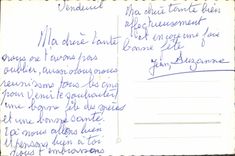 Vendeuil
Ma chère tante
nous ne l'avons pas
oublier, aussi nous nous
réunissons tous les cinq
pour venir te souhaiter
une bonne fête des mères
et une bonne santé.
Ici nous allons bien
et pensons bien à toi
nous t'embrassons
Ma chère tante bien
affectueusement
et encore une fois
bonne fête
Jean, Suzanne